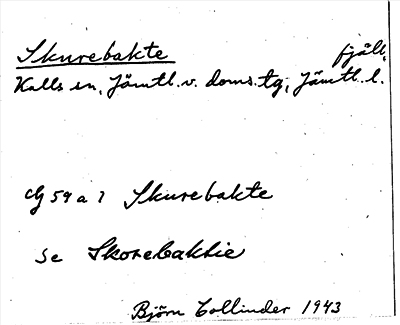 Skurebakte fjäll,
Kalls sn, Jämtl. v. doms. tg, Jämtl. l.
cg 59 a 7 Skurebakte
se Skorebaktie
Björn Collinder 1943